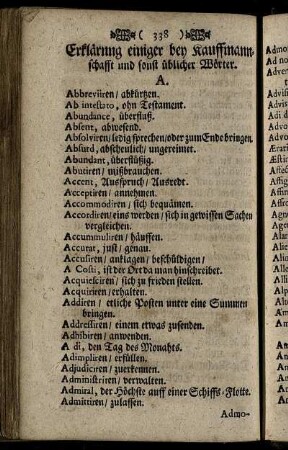 ( 338 )
Erklärung einiger bey Kauffmann-
schafft und sonst üblicher Wörter.
A.
Abbreviiren/ abkürtzen.
Ab intestato, ohn Testament.
Abundance, überfluß.
Absent, abwesend.
Absolviren/ ledig sprechen/oder zum Ende bringen.
Absurd, abscheulich/ ungereimet.
Abundant, überflüßig.
Abutiren/ mißbrauchen.
Accent, Ausspruch/ Ausrede.
Acceptiren/ annehmen.
Accommodiren/ sich bequämen.
Accordiren/ eins werden/ sich in gewissen Sachen
vergleichen.
Accummuliren/ häuffen.
Accurat, just/ genau.
Accusiren/ anklagen/ beschüldigen/
A Costi, ist der Ort da man hinschreibet.
Acquiesciren/ sich zu frieden stellen.
Acquiriren/ erhalten.
Addiren/ etliche Posten unter eine Summen
bringen.
Addressiren/ einem etwas zusenden.
Adhibiren/ anwenden.
A di, den Tag des Monahts.
Adimpliren/ erfüllen.
Adjudiciren/ zuerkennen.
Administriren/ verwalten.
Admiral, der Höchste auff einer Schiffs-Flotte.
Admittiren/ zulassen.
Admo-